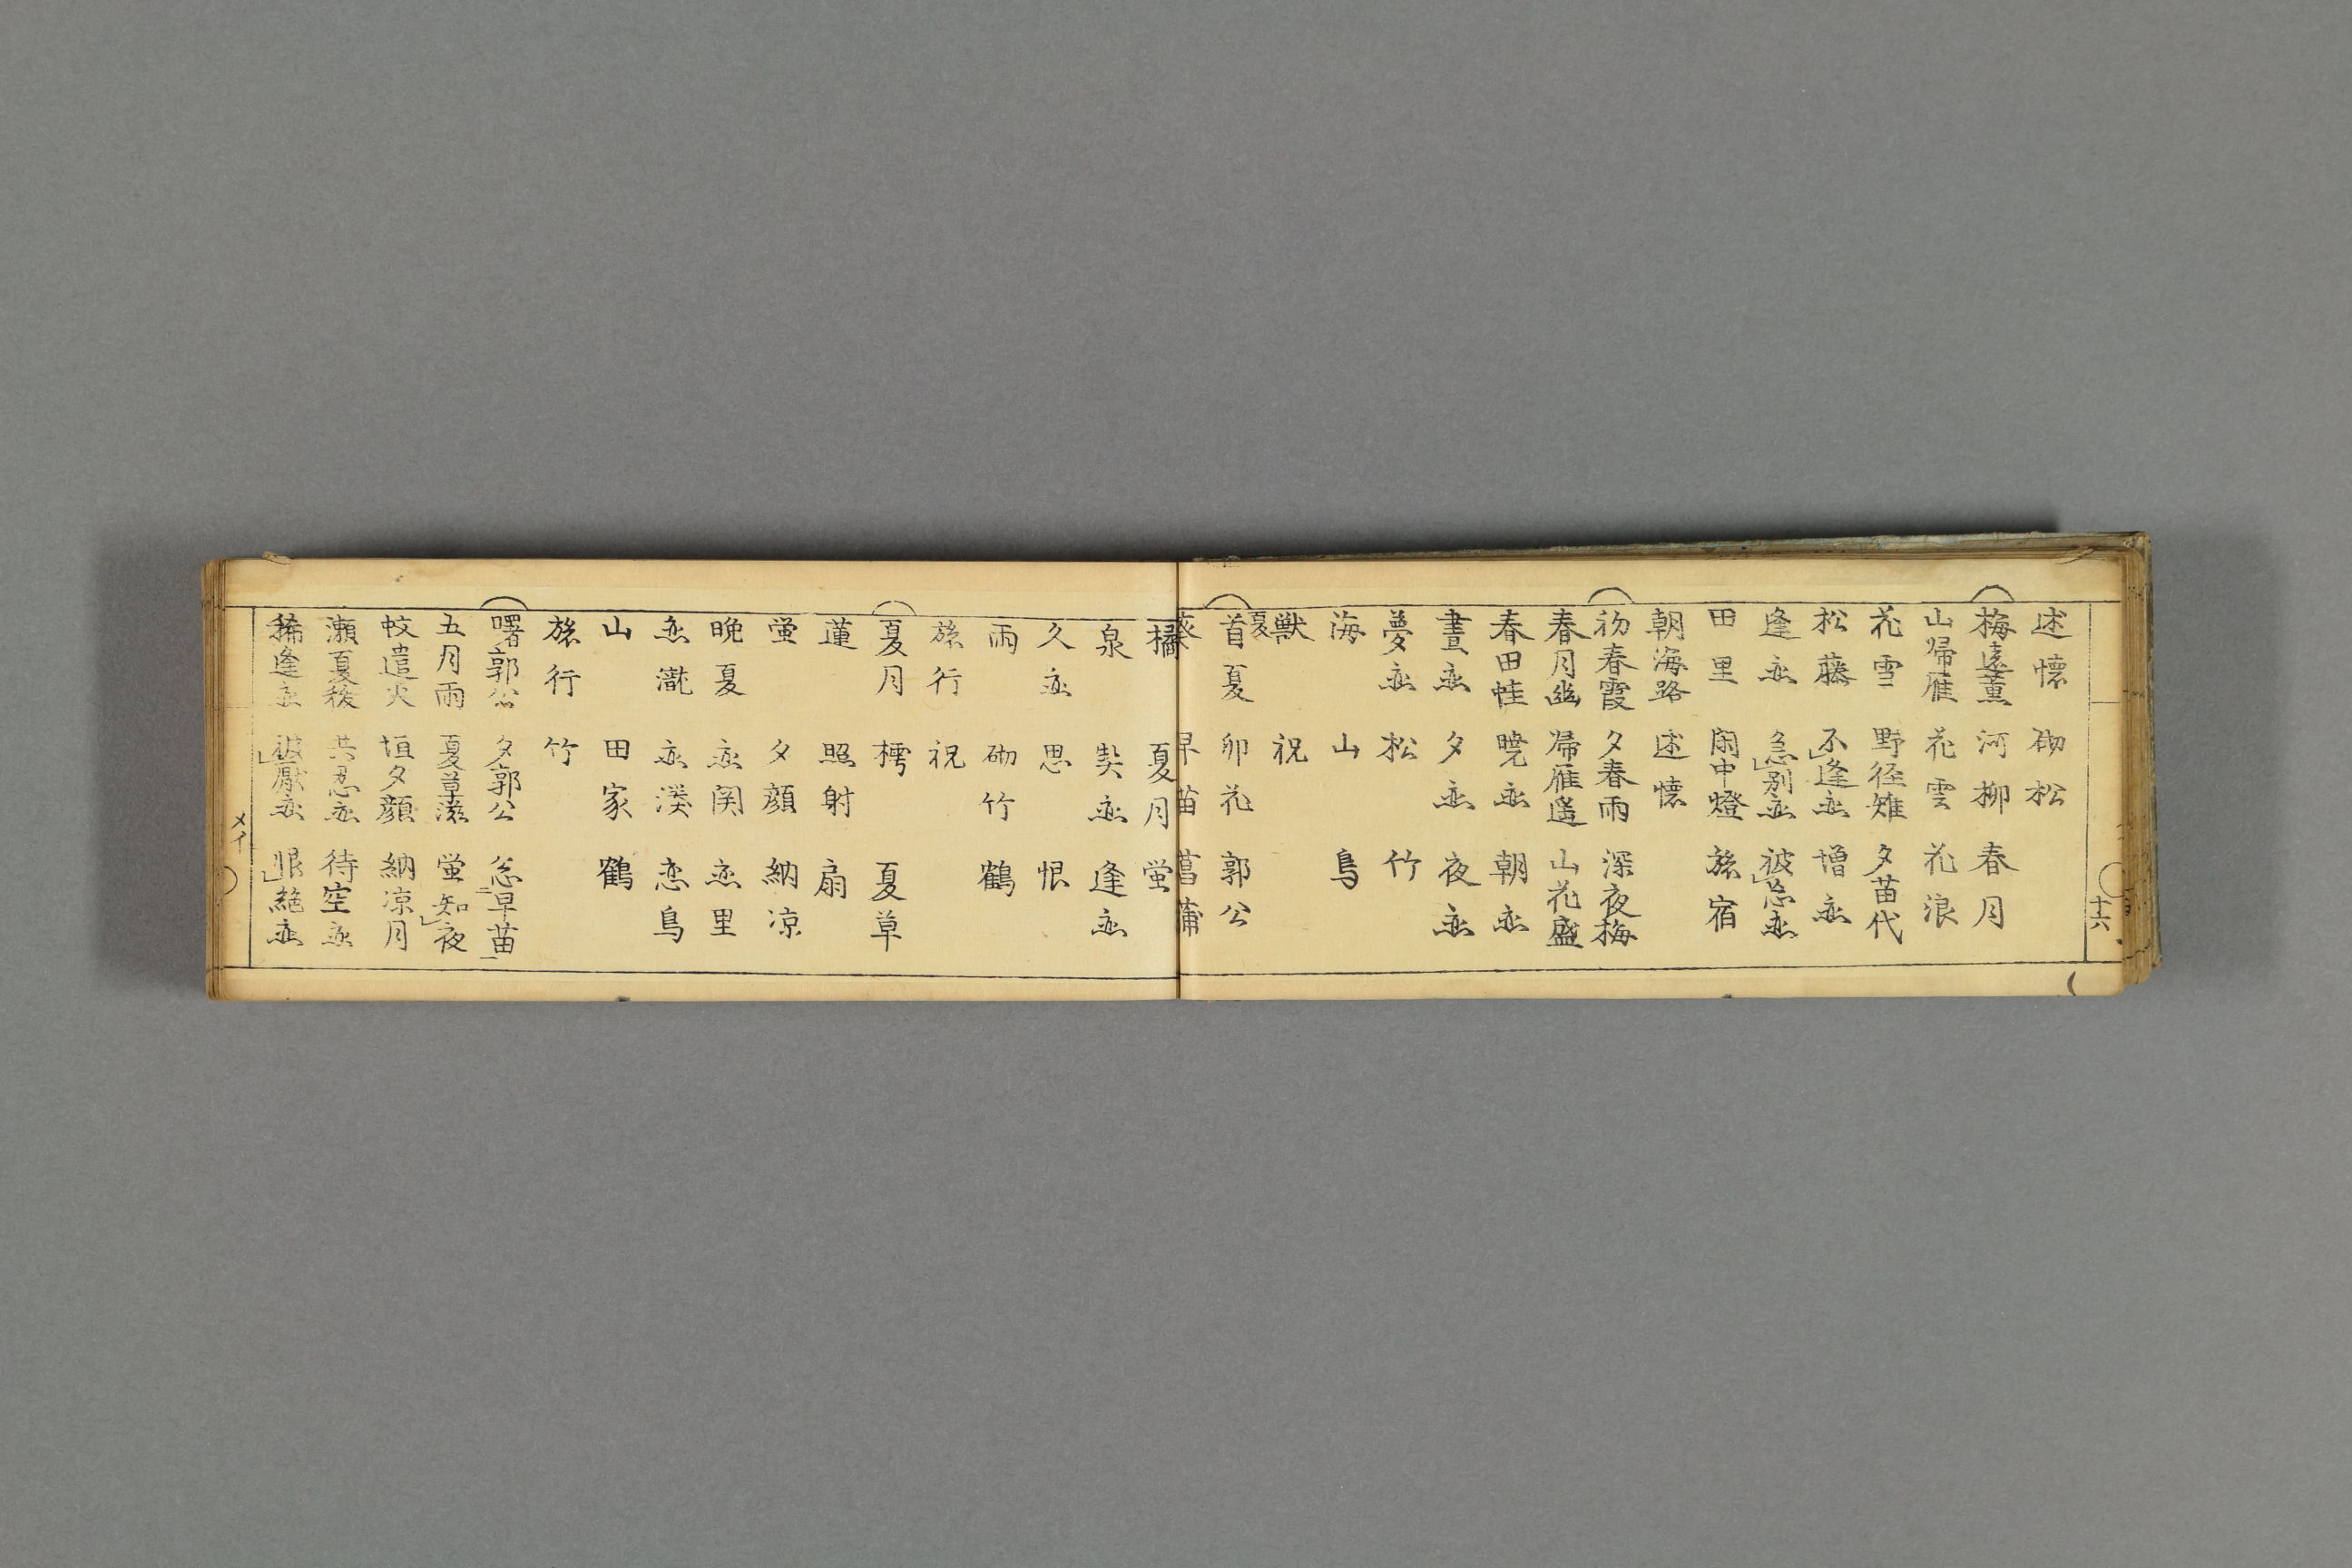 十六
述懐 砌松
梅遠薫 河柳 春月
山帰雁 花雲 花浪
花雪 野径雉 夕苗代
松藤 不逢恋 増恋
逢恋 急別恋 被忘恋
田里 閑中燈 旅宿
朝海路 述懐
初春霞 夕春雨 深夜梅
春月幽 帰雁遥 山花盛
春田蛙 暁恋 朝恋
昼恋 夕恋 夜恋
夢恋 松 竹
海 山 鳥
獣 祝
夏
首夏 卯花 郭公
早苗 菖蒲
橘 夏月 蛍
泉 契恋 逢恋
久恋 思 恨
雨 砌竹 鶴
旅行 祝
夏月 樗 夏草
蓮 照射 扇
蛍 夕顔 納凉
晩夏 恋関 恋里
恋滝 恋湊 恋鳥
山 田家 鶴
旅行 竹
曙郭公 夕郭公 急早苗
五月雨 夏草滋 蛍知夜
蚊遣火 垣夕顔 納凉月
瀬夏祓 共忍恋 待空恋
稀逢恋 被厭恋 恨絶恋
メイ